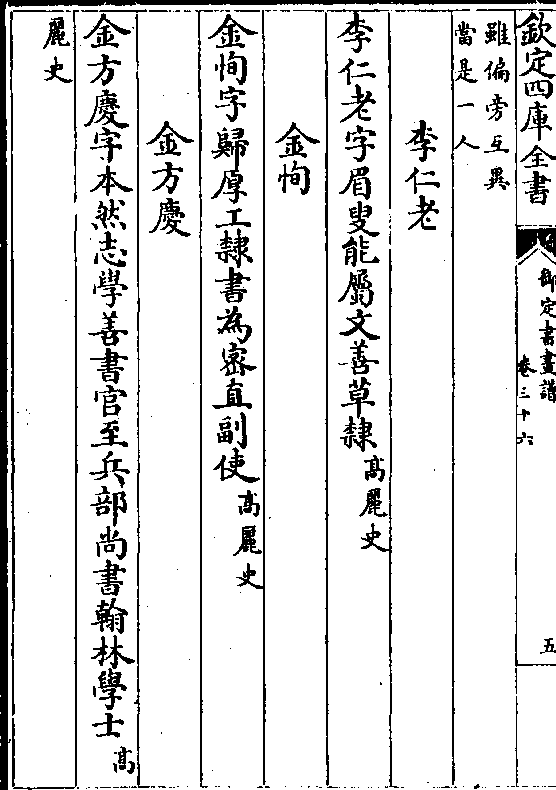 欽定四庫全書
御定書畫譜
卷三十六
五
雖偏旁互異
當是一人
李仁老
李仁老字眉叟能屬文善草隸高麗史
金恂
金恂字歸厚工隸書為密直副使高麗史
金方慶
金方慶字本然志學善書官至兵部尚書翰林學士高
麗史